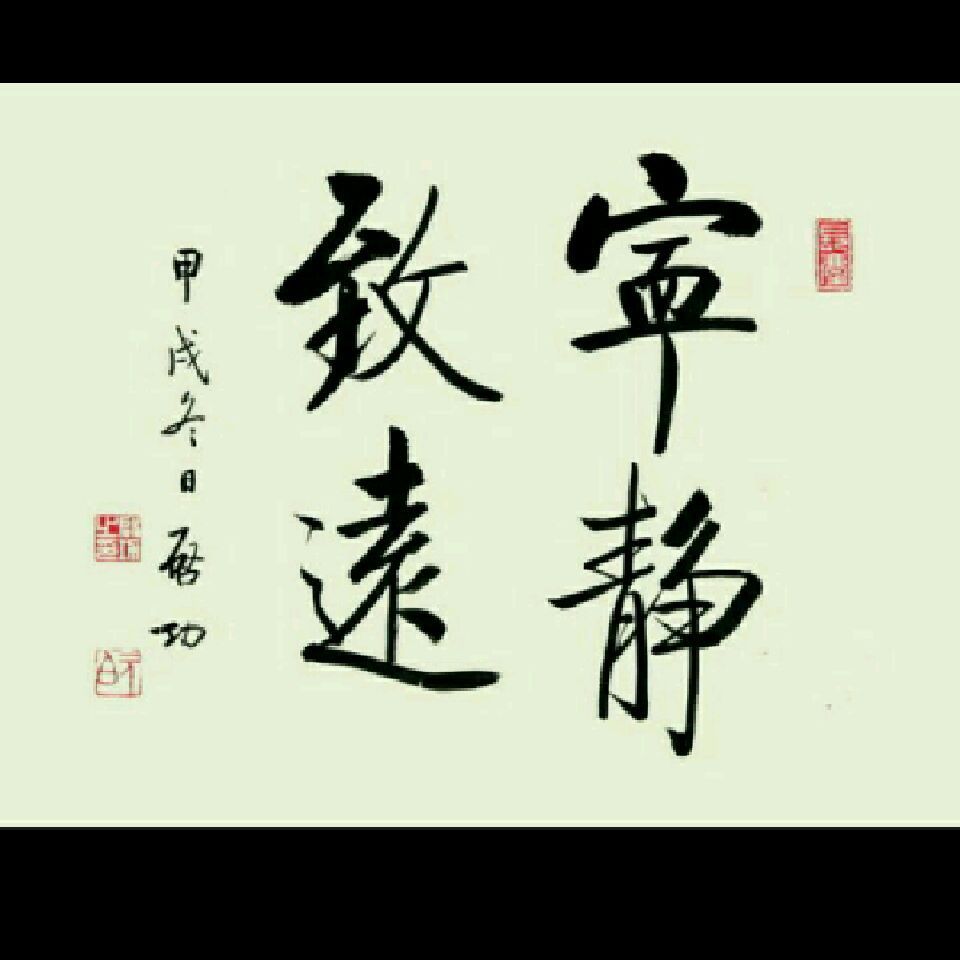 寧靜
致遠
甲戌冬日啓功